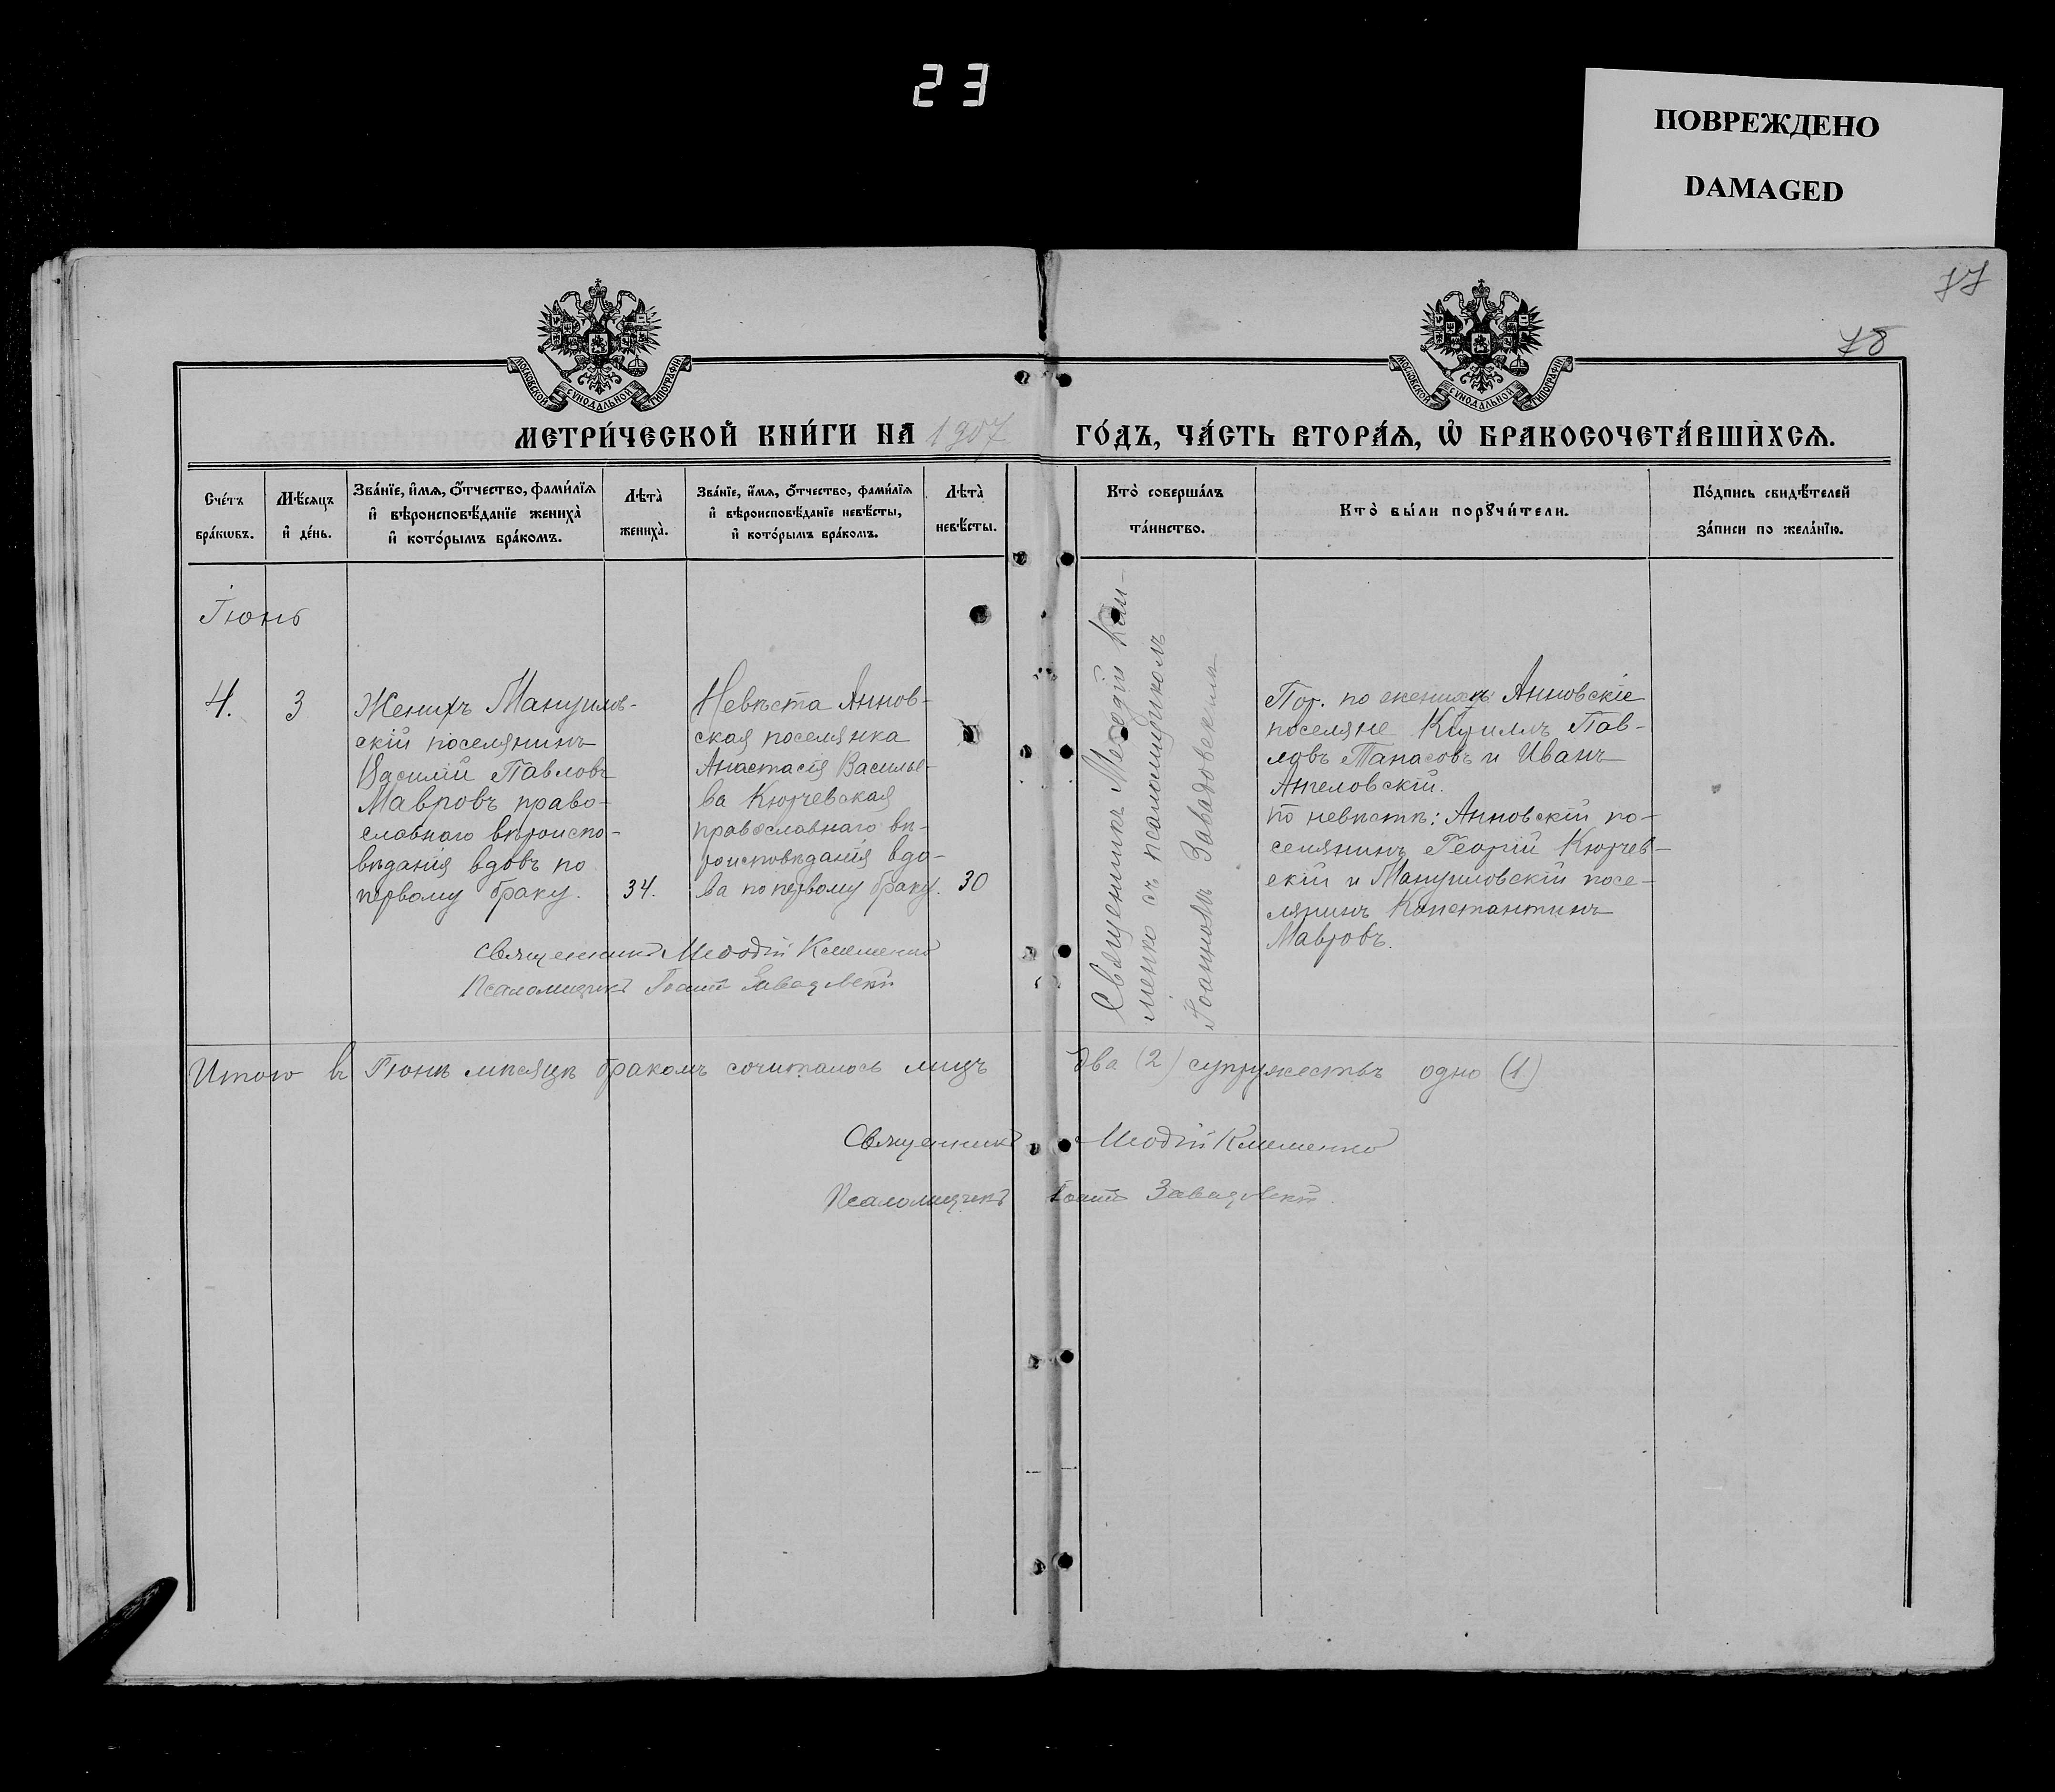 23
ПОВРЕЖДЕНО
DAMAGED
77
78
МОСКОВСКОЙ СѴНОДАЛЬНОЙ ТИПОГРАФІИ
МОСКОВСКОЙ СѴНОДАЛЬНОЙ ТИПОГРАФІИ
МЕТРИ́ЧЕСКОЙ КНИ́ГИ НА 1907 ГО́ДЪ, ЧА́СТЬ ВТОРА́Ѧ, Ѡ҆ БРАКОСОЧЕТА́ВШИХСѦ.
Сче́тъ
бра́кѡвъ.
Мѣ́сѧцъ
и҆ де́нь.
Зва́нїе, и҆́мѧ, ѻ҆́тчество, фами́лїѧ
и҆ вѣроисповѣ́данїе жениха̀
и҆ кото́рымъ бра́комъ.
Лѣта̀
жениха̀.
Зва́нїе, и҆́мѧ, ѻ҆́тчество, фами́лїѧ
и҆ вѣроисповѣ́данїе невѣ́сты,
и҆ кото́рымъ бра́комъ.
Лѣта̀
невѣ́сты.
Кто̀ соверша́лъ
та́инство.
Кто̀ бы́ли порꙋчи́тели.
По́дпись свидѣ́телей
за́писи по жела́нїю.
Іюнь
4.
3
Женихъ Мануилов-
скій поселянинъ
Василій Павловъ
Мавровъ право-
славнаго вѣроиспо-
вѣданія вдовъ по
первому браку.
34.
Невѣста Аннов-
ская поселянка
Анастасія Василье-
ва Кюрчевская
православнаго вѣ-
роисповѣданія вдо-
ва по первому браку.
30
Священникъ Меѳодій Кли-
менко съ псаломщикомъ
Іоанномъ Завадовскимъ
Пор. по женихѣ Анновскіе
поселяне Кириллъ Пав-
ловъ Танасовъ и Иванъ
Ангеловскій.
по невѣстѣ: Анновскій по-
селянинъ Георгій Кюрчев-
скій и Мануиловскій посе-
лянинъ Константинъ
Мавровъ.
Священникъ Меѳодій Клименко
Псаломщикъ Іоаннъ Завадовскій
Итого въ Іюнѣ мѣсяцѣ бракомъ сочиталось лицъ два (2) супружествъ одно (1)
Священникъ Меѳодій Клименко
Псаломщикъ Іоаннъ Завадовскій.